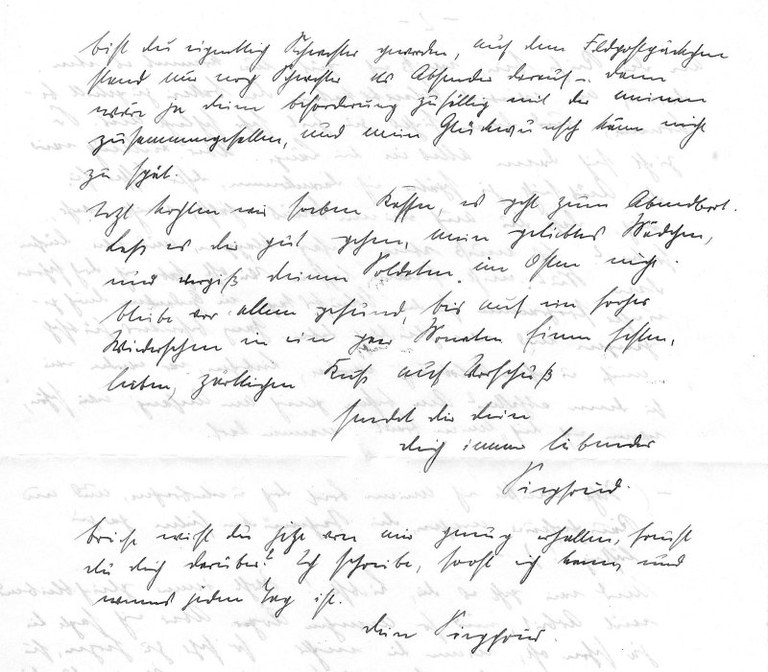 bist du eigentlich Schwester geworden, auf dem Feldpostpäckchen
stand nur noch Schwester als Absender darauf - dann
wäre ja deine Beförderung zufällig mit der meinen
zusammengefallen, und mein Glückwunsch käme nicht
zu spät.
Jetzt kochten wir soeben Kaffee, es geht zum Abendbrot.
Laß es dir gut gehen, mein geliebtes Mädchen,
und vergiß deinen Soldaten im Osten nicht.
bleibe vor allem gesund, bis auf ein frohes
Wiedersehen in ein paar Monaten. Einen
lieben, zärtlichen Kuß auf Vorschuß
sendet dir dein
dich immer liebender
Siegfried.
Briefe wirst du jetzt von mir genug erhalten, freust
du dich darüber? Ich schreibe, sooft ich kann, und
wenns jeden Tag ist.
dein Siegfried.